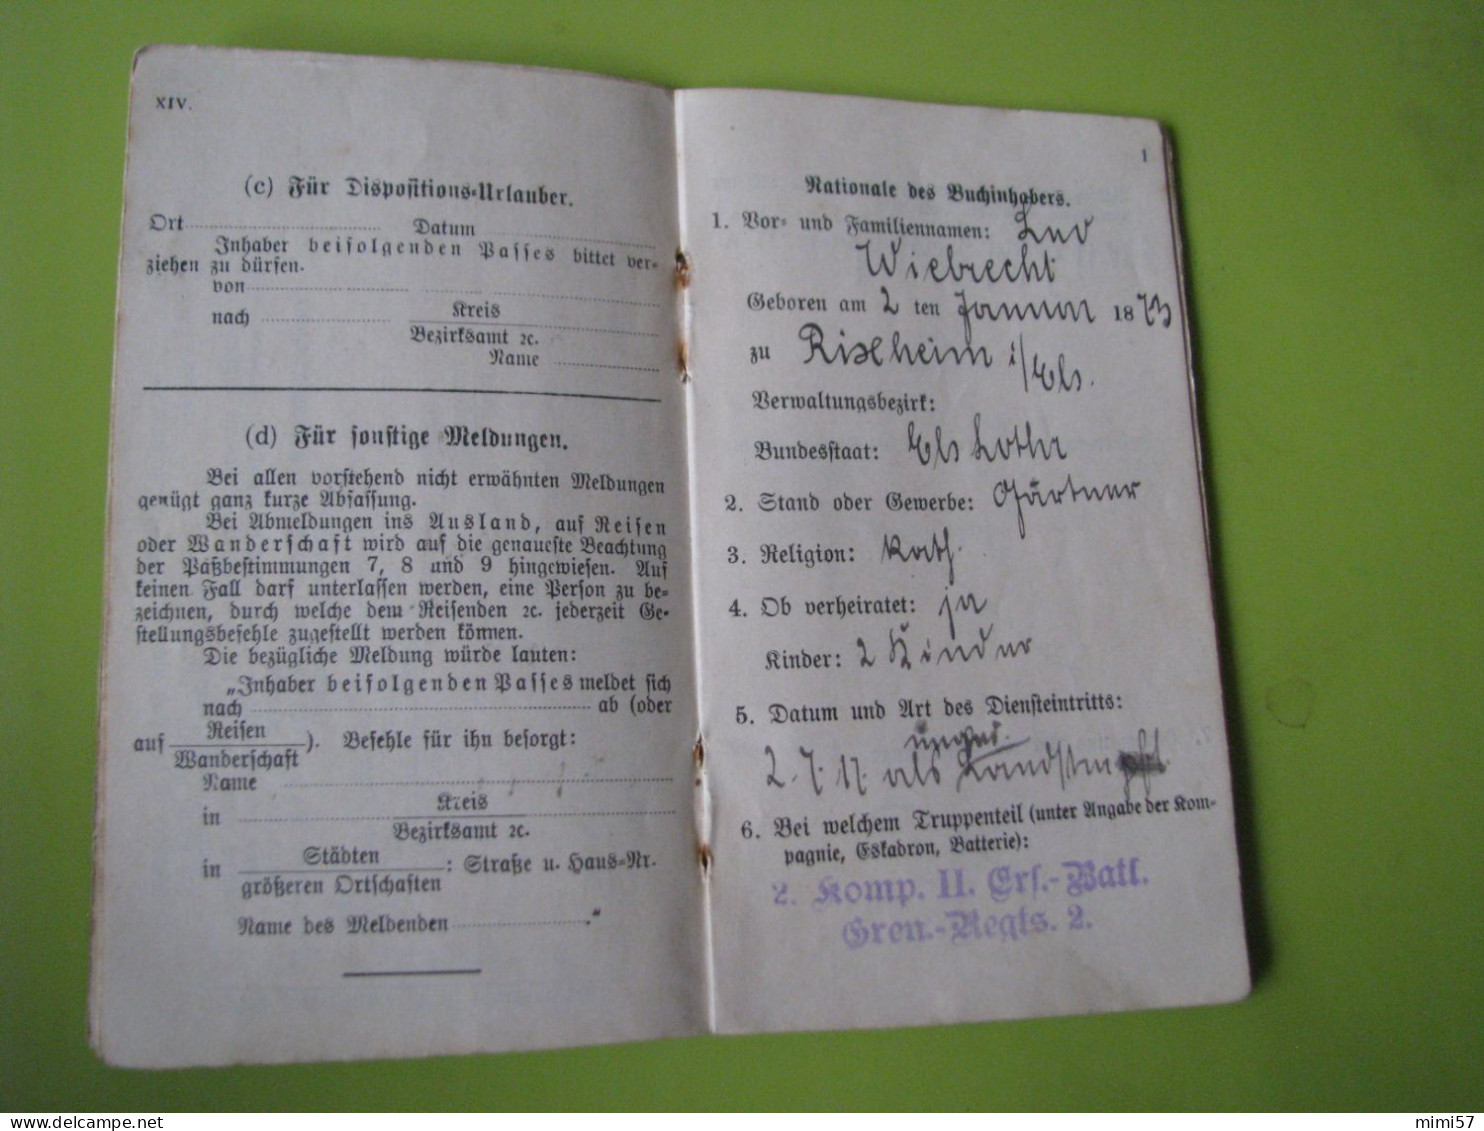 XIV.
(c) Für Dispositions-Urlauber.
Ort Datum
Inhaber beifolgenden Passes bittet ver-
ziehen zu dürfen.
von
nach Kreis
Bezirksamt ꝛc.
Name
(d) Für sonstige Meldungen.
Bei allen vorstehend nicht erwähnten Meldungen
genügt ganz kurze Abfassung.
Bei Abmeldungen ins Ausland, auf Reisen
oder Wanderschaft wird auf die genaueste Beachtung
der Paßbestimmungen 7, 8 und 9 hingewiesen. Auf
keinen Fall darf unterlassen werden, eine Person zu be-
zeichnen, durch welche dem Reisenden ꝛc. jederzeit Ge-
stellungsbefehle zugestellt werden können.
Die bezügliche Meldung würde lauten:
„Inhaber beifolgenden Passes meldet sich
nach ab (oder
auf Reisen
Wanderschaft). Befehle für ihn besorgt:
Name
in Kreis
Bezirksamt ꝛc.
in Städten
größeren Ortschaften: Straße u. Haus-Nr.
Name des Meldenden ."
1
Nationale des Buchinhabers.
1. Vor- und Familiennamen:
Wiebrecht
Geboren am 2 ten Januar 1873
zu Rixheim i/Els.
Verwaltungsbezirk:
Bundesstaat: Els Lothr
2. Stand oder Gewerbe: Gärtner
3. Religion: Kath.
4. Ob verheiratet: ja
Kinder: 2 Kinder
5. Datum und Art des Diensteintritts:
2.7.17. als
6. Bei welchem Truppenteil (unter Angabe der Kom-
pagnie, Eskadron, Batterie):
2. Komp. II. Ers.-Batl.
Gren.-Regts. 2.
delcampe.net
mimi57